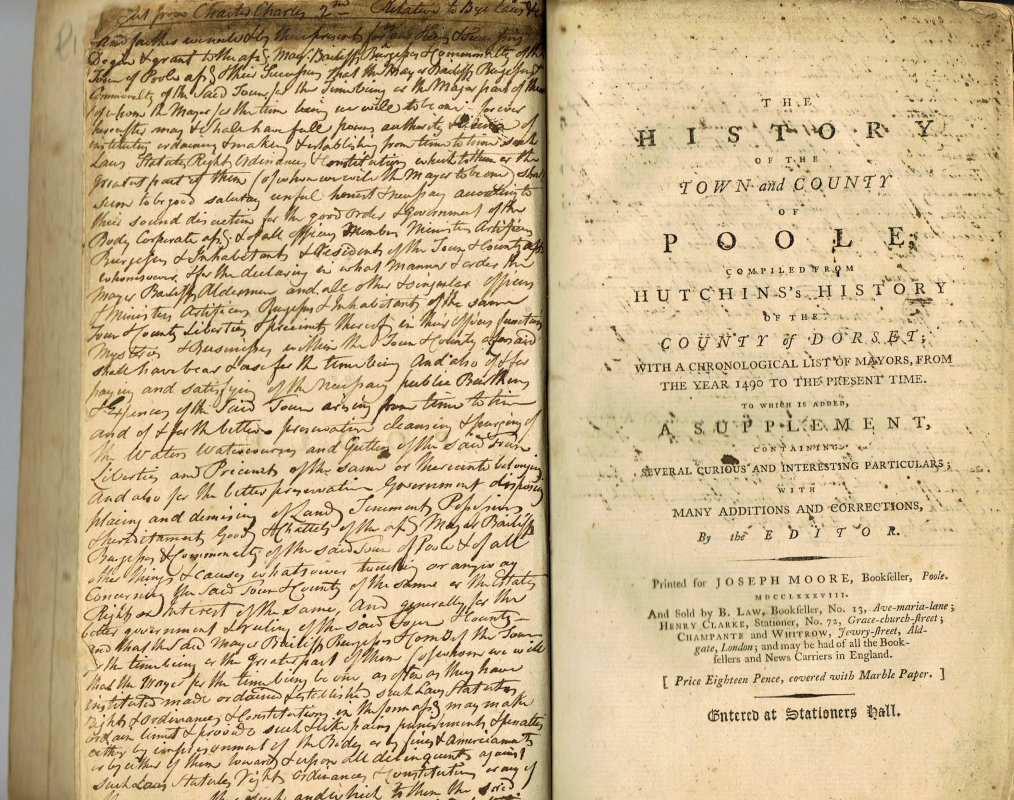 from Charter Charles 2nd Relative to Bye Laws &c
And further we will & by these presents for our Heirs &
& grant to the afs Mayr Bailiffs Burgesses & Commonalty of the
Town of Poole afs & their Successors that the Mayor Bailiffs Burgesses &
Commonalty of the said Town for the time being or the Major part of them
(of whom the Mayor for the time being we will to be one) for ever
hereafter may & shall have full power authority & of
instituting ordaining & making & establishing from time to time such
Laws Statutes Right Ordinances & Constitutions which to them or the
greatest part of them (of whom we will the Mayor to be one) shall
seem to be good salutary useful honest & necessary according to
their sound discretion for the good order & Government of the
Body Corporate afs & of all officers Ministers Artificers
Burgesses & Inhabitants & Residents of the Town & County afs
whomsoever & for the declaring in what manner & order the
Mayor Bailiffs Aldermen and all other & singular officers
& Ministers Artificers Burgesses & Inhabitants of the same
Town & County Liberties & precincts thereof in their offices functions
Mysteries & Businesses within the Town & County aforesaid
shall have bear & use for the time being And also of & for
paying and satisfying of the necessary publick Burthens
& Expences of the said Town arising from time to time
and of & for the better preservation cleansing & purging of
the Waters Watercourses and Gutters of the said Town
Liberties and Precincts of the same or thereunto belonging
And also for the better preservation Government disposing
placing and demising of Lands Tenements Possessions
& Hereditaments Goods & Chattels of the afs Mayor Bailiffs
Burgesses & Commonalty of the said Town of Poole & of all
other things & causes whatsoever touching or anyway
Concerning the said Town & County of the same or the State
Right or Interest of the same, And generally for the
better government & ruling of the said Town & County
And that the sd Mayor Bailiffs Burgesses & Com of the Town
for the time being or the greatest part of them (of whom we will
that the Mayor for the time being be one as often as they have
instituted made ordained & established such Laws Statutes
rights & ordinances & Constitutions in the form afs may make
ordain limit & provide such & like pains punishments & penalties
either by imprisonment of the Body or by fines & Amerciaments
or by either of them toward & upon all delinquents against
such Laws Statutes Rights ordinances & Constitutions or any of
and which to them the said
THE
HISTORY
OF THE
TOWN and COUNTY
OF
POOLE;
COMPILED FROM
HUTCHINS's HISTORY
OF THE
COUNTY of DORSET;
WITH A CHRONOLOGICAL LIST OF MAYORS, FROM
THE YEAR 1490 TO THE PRESENT TIME.
TO WHICH IS ADDED,
A SUPPLEMENT,
CONTAINING
SEVERAL CURIOUS AND INTERESTING PARTICULARS;
WITH
MANY ADDITIONS AND CORRECTIONS,
By the EDITOR.
Printed for JOSEPH MOORE, Bookſeller, Poole.
MDCCLXXXVIII.
And Sold by B. LAW, Bookſeller, No. 13, Ave-maria-lane;
HENRY CLARKE, Stationer, No. 72, Grace-church-ſtreet;
CHAMPANTE and WHITROW, Jewry-ſtreet, Ald-
gate, London; and may be had of all the Book-
ſellers and News Carriers in England.
[ Price Eighteen Pence, covered with Marble Paper. ]
Entered at Stationers Hall.